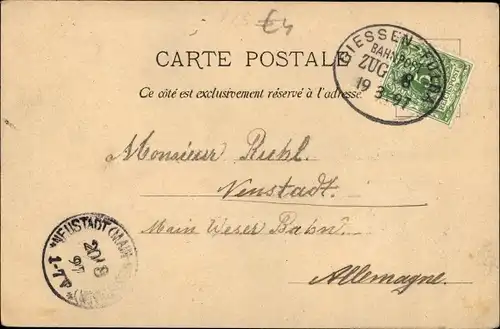 €4
CARTE POSTALE
Ce côté est exclusivement réservé à l'adresse.
GIESSEN-FULDA
BAHNPOST
ZUG 8
19 3.97
Monsieur Riehl.
Neustadt.
Main Weser Bahn.
Allemagne.
NEUSTADT (MAIN
20/3
1-7